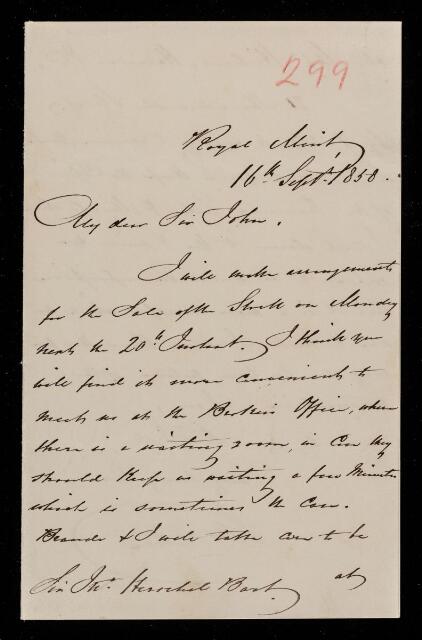 299
Royal Mint
16th Septr. 1858.
My dear Sir John,
I will make arrangements
for the Sale of the Stock on Monday
next the 20th Instant. I think you
will find it more convenient to
meet us at the Brokers Office, where
there is a waiting room, in case they
should keep us waiting a few Minutes
which is sometimes the case.
Brande & I will take care to be
Sir Jno. Herschel Bart. at